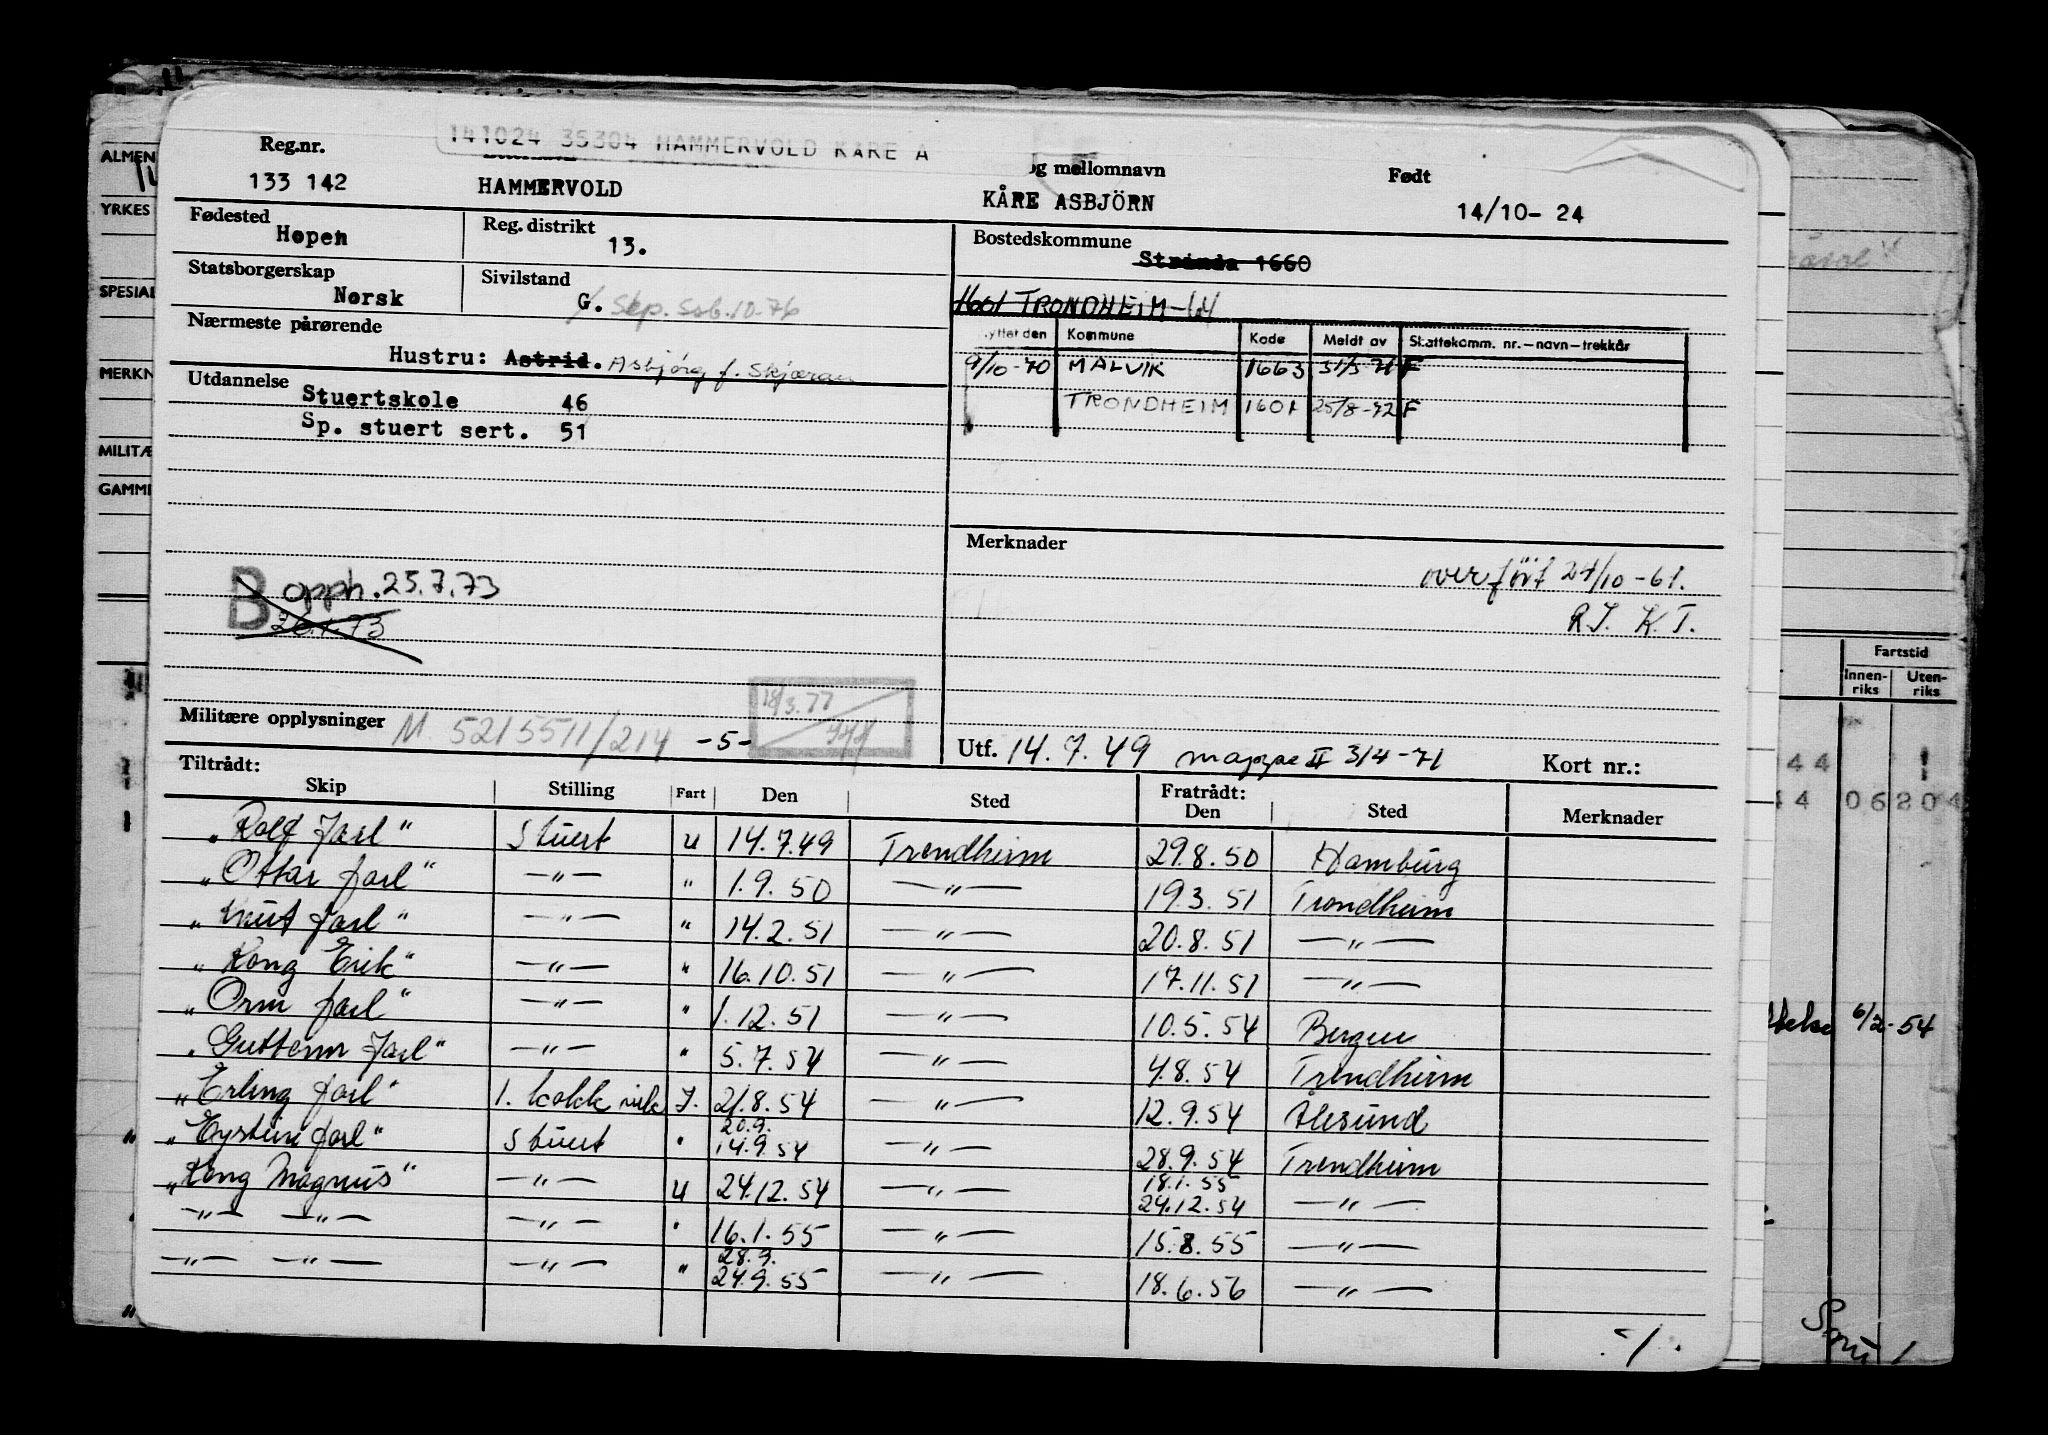 141024 35304 HAMMERVOLD KÅRE A
Reg.nr. og mellomnavn Født
133 142 HAMMERVOLD KÅRE ASBJÖRN 14/10- 24
Fødested Reg. distrikt Bostedskommune
Hopen 13. Strinda 1660
Statsborgerskap Sivilstand
Norsk G. Sep. 10-76 1601 TRONDHEIM
Nærmeste pårørende
Hustru: Astrid. Asbjørg f. Skjæran
Flyttet den Kommune Kode Meldt av Skattekomm. nr.—navn—trekkår
9/10-70 MALVIK 1663 31/3-71 F
TRONDHEIM 1601 25/8-72 F
Utdannelse
Stuertskole 46
Sp. stuert sert. 51
Merknader
overført 24/10-61.
R.J. K.T.
B opph. 25.7.73
Militære opplysninger M. 5215511/214 -5-
18/3.77
Utf. 14.7.49 mappe II 3/4-71 Kort nr.:
Tiltrådt: Fratrådt:
Skip Stilling Fart Den Sted Den Sted Merknader
"Rolf Jarl" Stuert U 14.7.49 Trondheim 29.8.50 Hamburg
"Ottar Jarl" —"— " 1.9.50 —"— 19.3.51 Trondheim
"Knut Jarl" —"— " 14.2.51 —"— 20.8.51 —"—
"Kong Erik" —"— " 16.10.51 —"— 17.11.51 —"—
"Orm Jarl" —"— " 1.12.51 —"— 10.5.54 Bergen
"Guttorm Jarl" —"— " 5.7.54 —"— 4.8.54 Trondheim
"Erling Jarl" 1. kokk J. 21.8.54 —"— 12.9.54 Ålesund
"Eystein Jarl" Stuert " 20.9. 14.9.54 —"— 28.9.54 Trondheim
"Kong Magnus" —"— U 24.12.54 —"— 18.1.55 24.12.54 —"—
—"— —"— —"— " 16.1.55 —"— 15.8.55 —"—
—"— —"— —"— " 28.9. 24.9.55 —"— 18.6.56 —"—
./.
ALMEN
YRKES
SPESIAL
MERKN
MILITÆ
GAMME
Fartstid
Innen-riks Uten-riks
44
44 06 20 4
6/2-54